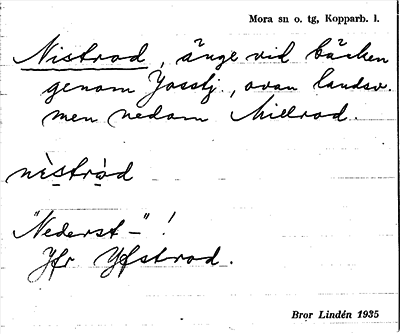 Mora sn o. tg, Kopparb. l.
Nistrod, änge vid bäcken
genom Josstj., ovan landsv.
men nedom Millrod.
nìstrȧ̀d
"Nederst–"!
Jfr Yfstrod.
Bror Lindén 1935